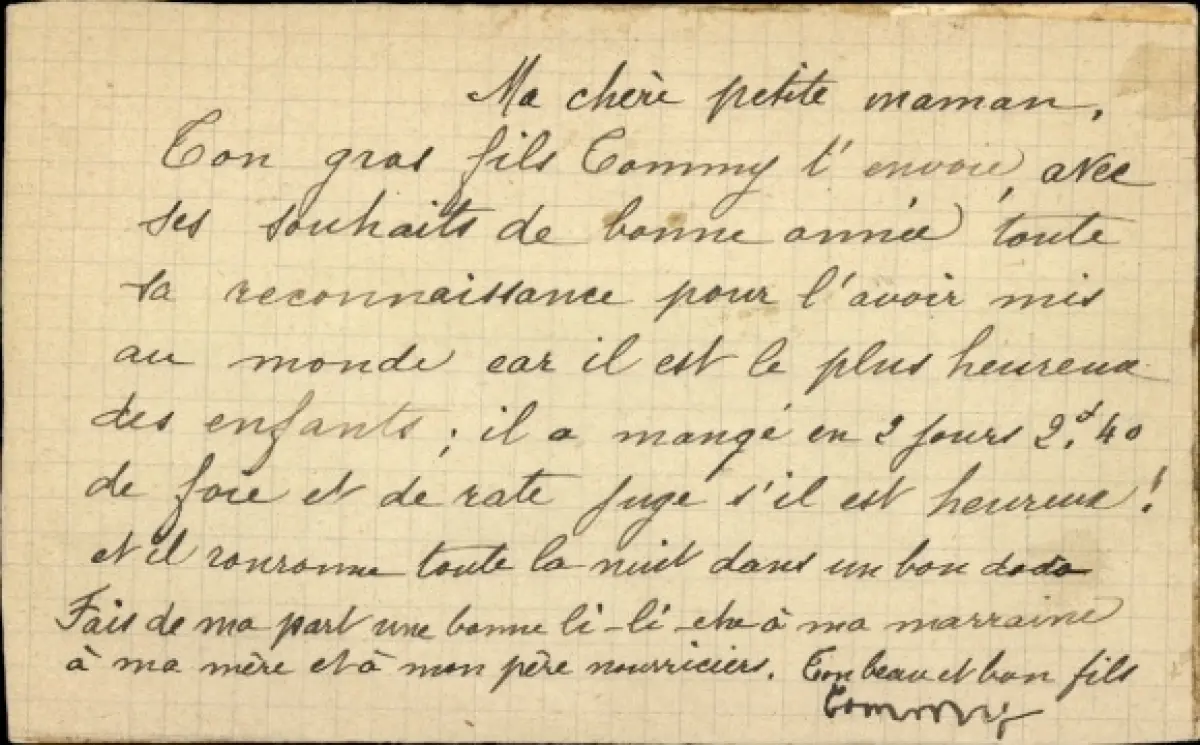 Ma chère petite maman,
Ton gros fils Tommy t'envoie, avec
ses souhaits de bonne année, toute
sa reconnaissance pour l'avoir mis
au monde car il est le plus heureux
des enfants ; il a mangé en 2 jours 2. 40
de foie et de rate juge s'il est heureux !
et il ronronne toute la nuit dans un bon dodo
Fais de ma part une bonne li-li-che à ma marraine
à ma mère et à mon père nourriciers. Ton beau et bon fils
Tommy